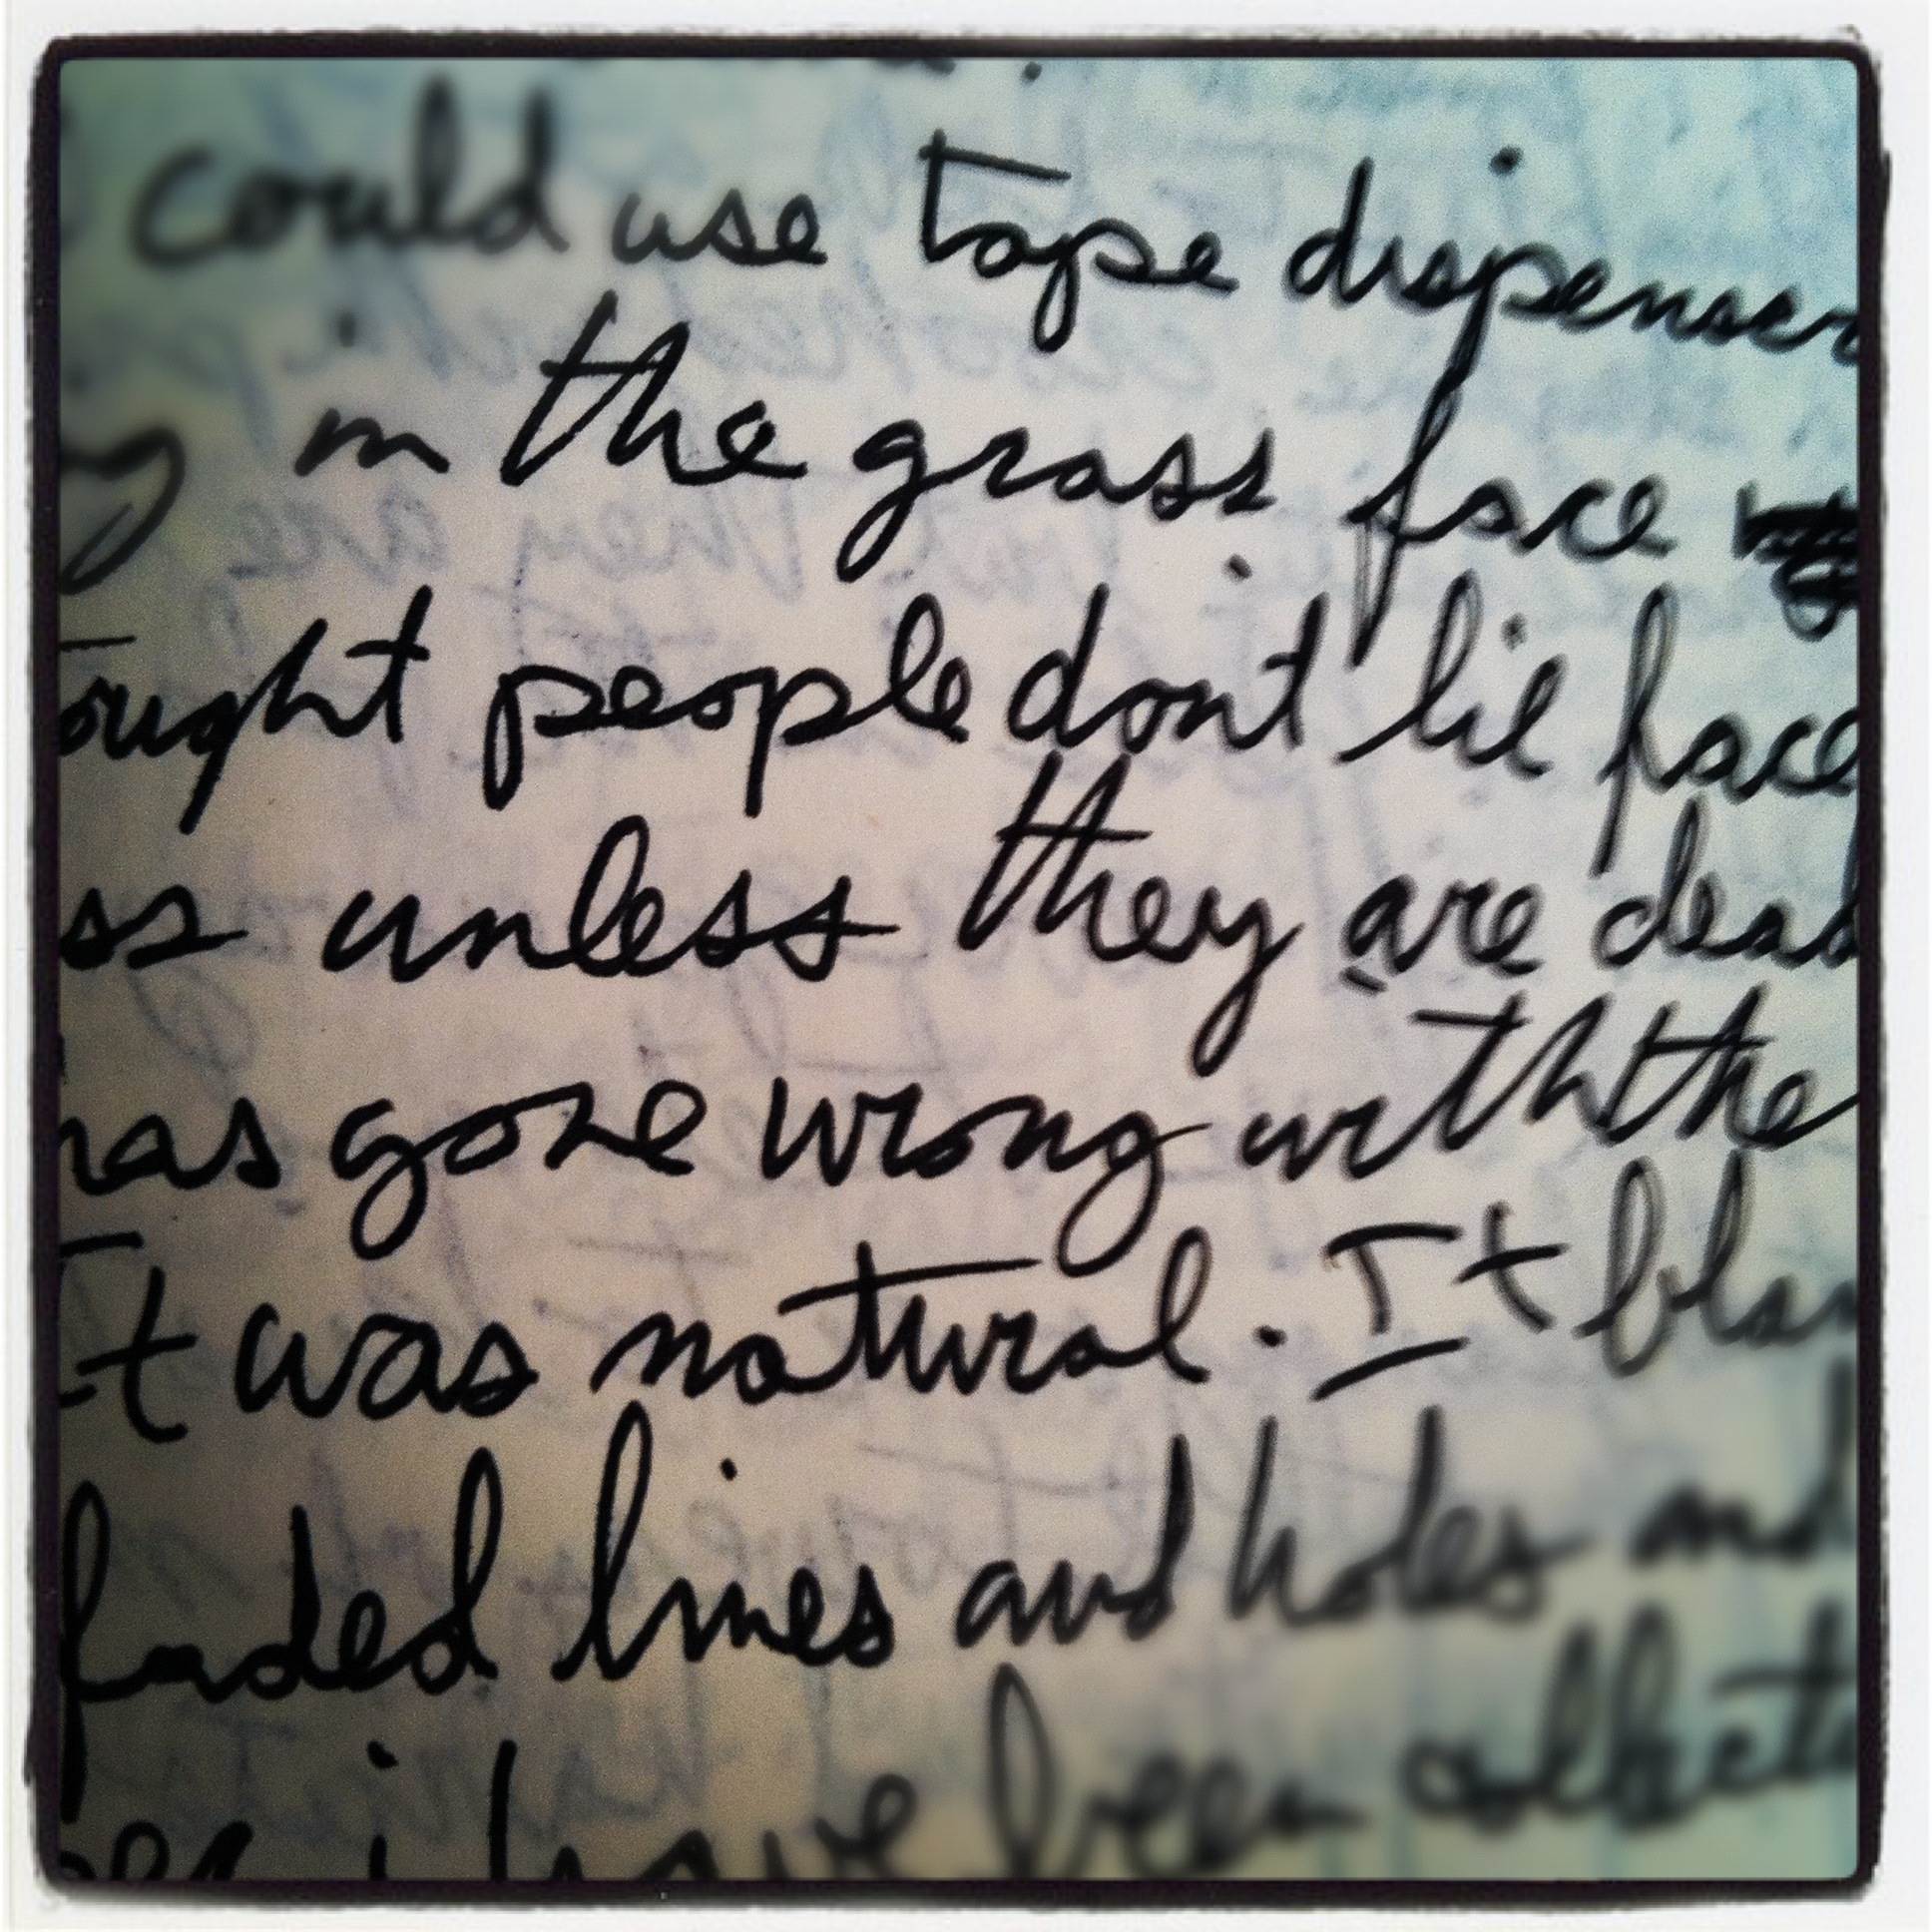 could use tape dispenser
in the grass face
ought people dont lie face
ss unless they are dead
has gone wrong with the
It was natural. It
faded lines and holes and
i have been collecte